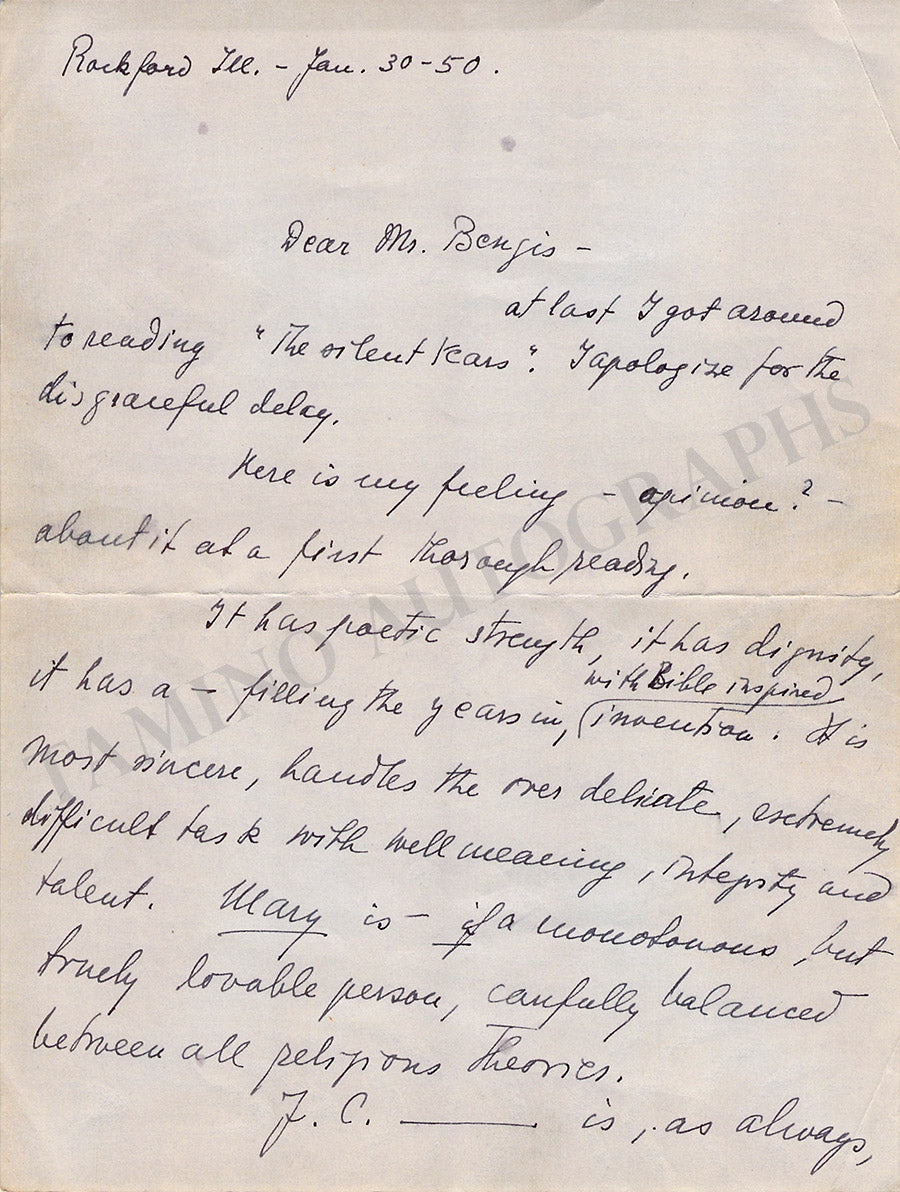 Rockford Ill. - Jan. 30-50.
Dear Mr. Bengis -
at last I got around
to reading "The silent Years". I apologize for the
disgraceful delay.
Here is my feeling - opinion? -
about it at a first thorough reading.
It has poetic strength, it has dignity,
with Bible inspired
it has a - filling the years in, invention. It is
most sincere, handles the over delicate, extremely
difficult task with well meaning, integrity and
talent. Mary is - if a monotonous, but
truely lovable person, carfully balanced
between all religious theories.
J. C. ——— is, as always,
TAMINO AUTOGRAPHS